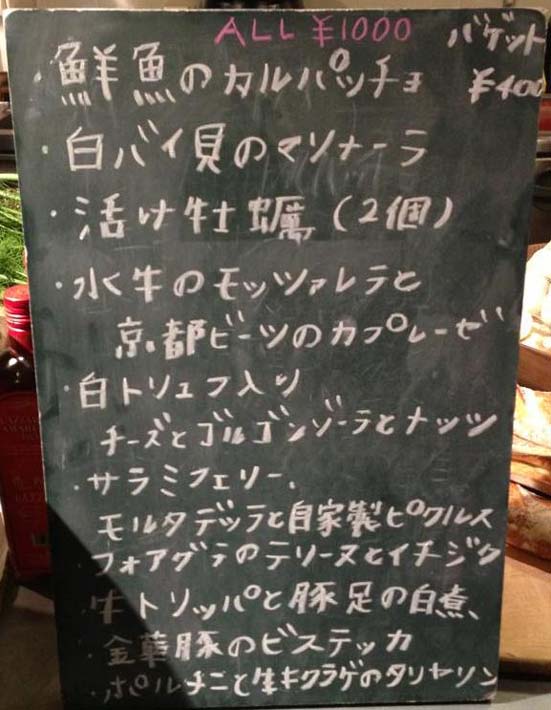 ALL ¥1000
バゲット
¥400
・鮮魚のカルパッチョ
・白バイ貝のマリナーラ
・活け牡蠣(2個)
・水牛のモッツァレラと
京都ビーツのカプレーゼ
・白トリュフ入り
チーズとゴルゴンゾーラとナッツ
・サラミフェリー、
モルタデッラと自家製ピクルス
・フォアグラのテリーヌとイチジク
・牛トリッパと豚足の白煮、
・金華豚のビステッカ
・ポルチーニと生キクラゲのタリヤリン